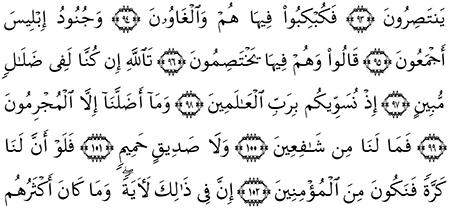 يَنتَصِرُونَ ﴿٩٣﴾ فَكُبْكِبُوا۟ فِيهَا هُمْ وَٱلْغَاوُۥنَ ﴿٩٤﴾ وَجُنُودُ إِبْلِيسَ
أَجْمَعُونَ ﴿٩٥﴾ قَالُوا۟ وَهُمْ فِيهَا يَخْتَصِمُونَ ﴿٩٦﴾ تَٱللَّهِ إِن كُنَّا لَفِى ضَلَٰلٍ
مُّبِينٍ ﴿٩٧﴾ إِذْ نُسَوِّيكُم بِرَبِّ ٱلْعَٰلَمِينَ ﴿٩٨﴾ وَمَآ أَضَلَّنَآ إِلَّا ٱلْمُجْرِمُونَ
﴿٩٩﴾ فَمَا لَنَا مِن شَٰفِعِينَ ﴿١٠٠﴾ وَلَا صَدِيقٍ حَمِيمٍ ﴿١٠١﴾ فَلَوْ أَنَّ لَنَا
كَرَّةً فَنَكُونَ مِنَ ٱلْمُؤْمِنِينَ ﴿١٠٢﴾ إِنَّ فِى ذَٰلِكَ لَءَايَةً ۖ وَمَا كَانَ أَكْثَرُهُم